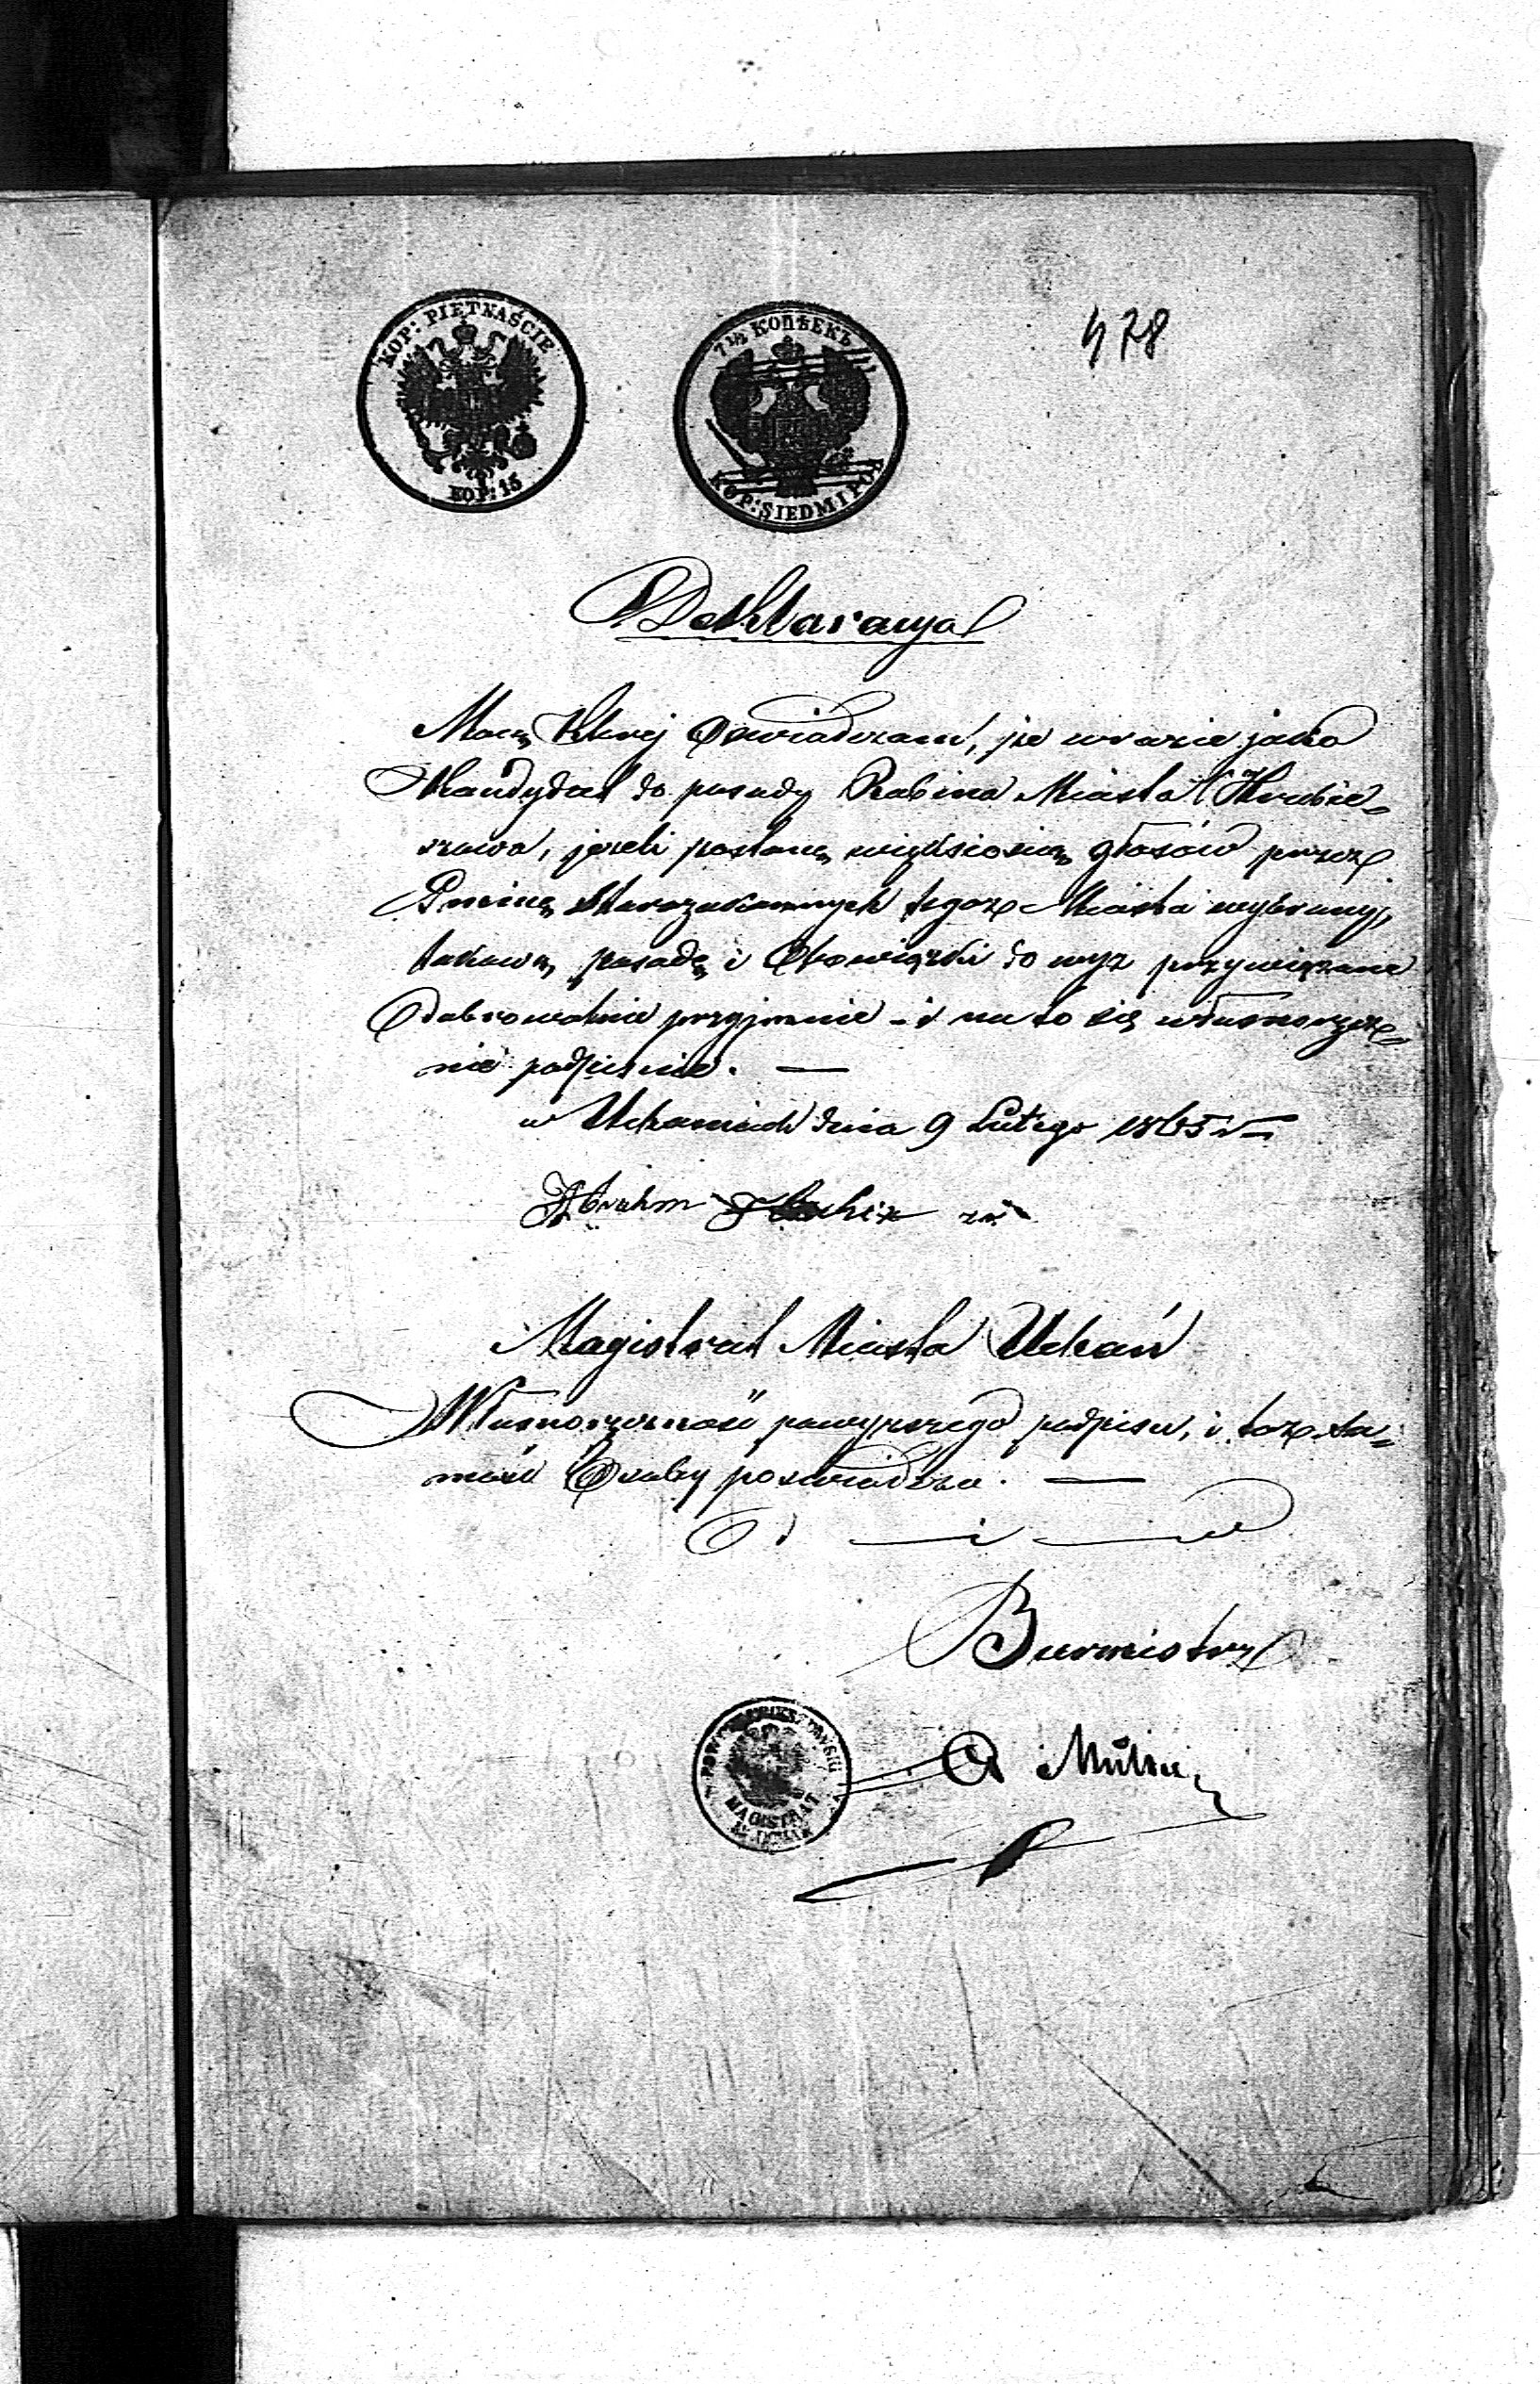 478
KOP: PIĘTNAŚCIE
KOP: 15
7½ КОПѢЕКЪ
KOP: SIEDM I PÓŁ
Deklaracya
Mocą której Oswiadczam, że w razie jako
Kandydat do posady Rabina Miasta Hrubie=
szowa, jezeli postanę większością głosów przez
Gminę Starozakonnych tegoż Miasta wybrany,
takową posadę i Obowiązki do niej przywiązane
dobrowolnie przyjmuie - i na to się własnoręcz=
nie podpisuie. —
w Uchaniach dnia 9 Lutego 1865 r
Abrahm
Magistrat Miasta Uchań
Własnoręczność powyższego podpisu, i toż sa=
mość Osoby poswiadcza. —
Burmistrz
MAGISTRAT